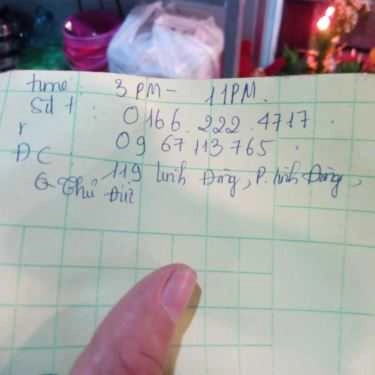 time: 3 PM - 11 PM.
Sđt: 0166.222.4717.
r 09 67 113 765.
ĐC 119 Linh Đông, P. Linh Đông,
Q Thủ Đức